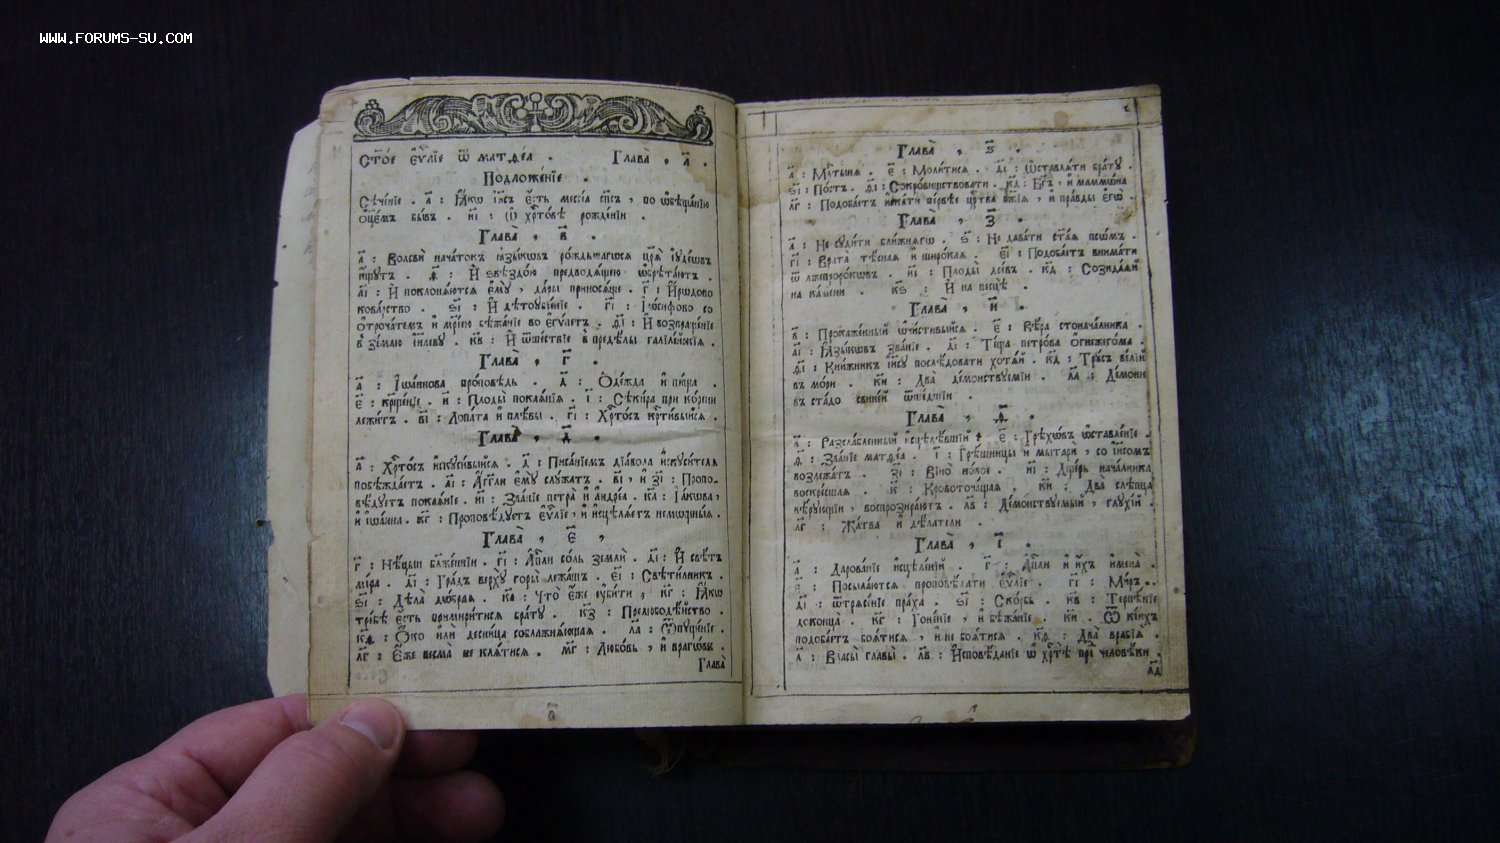 WWW.FORUMS-SU.COM
Ст҃о́е є҆ѵⷢ҇лїе ѿ матѳе́а . Глава̀ , а҃ .
Подложе́нїе .
Сѣче́нїе . а҃ : Ꙗ҆́кѡ і҆и҃съ є҆́сть мессі́а сп҃съ , по ѡ҆бѣща́нїю
ѻ҆тцє́мъ бы́въ . и҃і : Ѡ҆ хрⷭ҇то́вѣ рожде́нїи .
Глава̀ , в҃ .
а҃ : Волсвѝ нача́токъ ꙗ҆зы́кѡвъ ро́ждьшагосѧ цр҃ѧ̀ і҆ꙋде́ѡвъ
и҆́щꙋтъ . ѳ҃ : И҆ ѕвѣздо́ю предводѧ́щею ѡ҆брѣта́ютъ .
а҃і : И҆ поклонѧ́ютсѧ є҆мꙋ̀ , да́ры принося́ще . г҃і : И҆́рѡдово
кова́рство . ѕ҃і : И҆ дѣтоꙋбїе́нїе . г҃і : І҆ѡ́сифово со
ѻ҆троча́темъ и҆ мр҃і́ею бѣжа́нїе во є҆гѵ́петъ . ѳ҃і : И҆ возвраще́нїе
в̾ зе́млю і҆и҃левꙋ . к҃в : И҆ ѿше́ствїе в̾ предѣ́лы галїле́йскїѧ .
Глава̀ , г҃ .
а҃ : І҆ѡа́ннова про́повѣдь . д҃ : Ѻ҆де́жда и҆ пи́ща .
є҃ : крⷭ҇ще́нїе . и҃ : Плоды̀ покаѧ́нїѧ . і҃ : Сѣки́ра при ко́рени
лежи́тъ . в҃і : Лопа́та и҆ пле́вы . г҃і : Хрⷭ҇то́съ крⷭ҇ти́выйсѧ .
Глава̀ , д҃ .
а҃ : Хрⷭ҇то́съ и҆скꙋси́выйсѧ . д҃ : Писа́нїемъ дїа́вола и҆скꙋси́телѧ
побѣжда́етъ . а҃і : А҆́гг҃ли є҆мꙋ̀ слꙋ́жатъ . в҃і , и҆ з҃і : Пропо-
вѣ́дꙋетъ покаѧ́нїе . и҃і : Зва́нїе петра̀ и҆ а҆ндре́а . к҃а : І҆а́кѡва ,
и҆ і҆ѡа́нна . к҃г : Проповѣ́дꙋетъ є҆ѵⷢ҇лїе , и҆ и҆сцѣлѧ́етъ немощны́ѧ .
Глава̀ , є҃ ,
г҃ : Нѣ́цыи бл҃же́ннїи . г҃і : А҆пⷭ҇ли со́ль землѝ . д҃і : И҆ свѣ́тъ
мі́ра . д҃і : Гра́дъ верхꙋ̀ горы̀ лежа́щъ . є҃і : Свѣти́лникъ .
ѕ҃і : Дѣла̀ дѡ́браѧ . к҃а : что̀ є҆́же ᲂу҆би́ти ; к҃г : Ꙗ҆́кѡ
тре́бѣ є҆́сть примири́тисѧ бра́тꙋ . к҃з : Прелюбодѣ́йство .
к҃ѳ : Ѻ҆́ко и҆лѝ десни́ца соблажнѧ́ющаѧ . л҃а : Ѿпꙋще́нїе .
л҃г : Є҆́же весма̀ не клѧ́тисѧ . м҃г : Любо́вь , и҆ врагѡ́въ .
Глава̀
Глава̀ , ѕ҃ .
а҃ : Млⷭ҇тынѧ . є҃ : Моли́тисѧ . д҃і : ѡ҆ставлѧ́ти бра́тꙋ .
ѕ҃і : По́стъ . ѳ҃і : Сокро́виществовати . к҃д : Бг҃ъ , и҆ маммѡ́на
л҃г : Подоба́етъ и҆ска́ти пе́рвѣе црⷭ҇тва бж҃їѧ , и҆ пра́вды є҆гѡ̀ .
Глава̀ , з҃ .
а҃ : Не сꙋди́ти бли́жнѧго . ѕ҃ : Не дава́ти ст҃а́ѧ псѡ́мъ .
г҃і : Врата̀ тѣ́снаѧ и҆ широ́каѧ . є҃і : Подоба́етъ внима́ти
ѿ лжепроро́кѡвъ . и҃і : Плоды̀ . к҃д : Созида́ѧй
на ка́мени . к҃ѕ : И҆ на песцѣ̀ .
Глава̀ , и҃ .
в҃ : Прокаже́нный ѡ҆чи́стивыйсѧ . є҃ : Вѣ́ра стонача́лника .
а҃і : Ꙗ҆зы́кѡвъ зва́нїе . д҃і : Те́ща петро́ва ѻ҆гнежего́ма .
ѳ҃і : Кни́жникъ і҆и҃сꙋ послѣ́довати хотѧ́й . к҃д : Трꙋ́съ ве́лїй
въ мо́ри . к҃и : Два̀ де́монствꙋемїи . л҃а : Де́мони
въ ста́до свине́й ѿше́дшїи .
Глава̀ , ѳ҃ .
а҃ : Разсла́бленный и҆сцѣлѣ́вшїй . є҃ : Грѣхѡ́въ ѡ҆ставле́нїе .
ѳ҃ : Зва́нїе матѳе́а . і҃ : Грѣ́шницы и҆ мытарѝ , со і҆и҃сомъ
возлежа́тъ . з҃і : Вїно̀ но́вое . и҃і : Дще́рь нача́лника
воскре́сшаѧ . к҃ : Кровоточи́щаѧ . к҃и : Два̀ слѣпца̀
вѣ́рꙋющїи , воспрозира́ютъ . л҃в : Де́монствꙋемый , глꙋхі́й .
л҃г : Жа́тва и҆ дѣ́латели .
Глава̀ , і҃ .
а҃ : Дарова́нїе и҆сцѣле́нїй . г҃ : А҆пⷭ҇ли и҆ и҆́хъ и҆мена̀ .
є҃ : Посыла́ютсѧ проповѣ́дати є҆ѵⷢ҇лїе . г҃і : Ми́ръ .
д҃і : ѿтрѧсе́нїе пра́ха . ѕ҃і : Ско́рбь . к҃в : Терпѣ́нїе
доконца̀ . к҃г : Гоне́нїе , и҆ бѣжа́нїе . к҃и . Ѿ кі́ихъ
подоба́етъ боѧ́тисѧ , и҆ не боѧ́тисѧ . к҃ѳ : Два̀ врабїѧ̑ .
л҃ : Власы̀ главы̀ . л҃в : И҆сповѣ́данїе ѡ҆ хрⷭ҇тѣ̀ пре́д̾ человѣ́ки .
л҃д